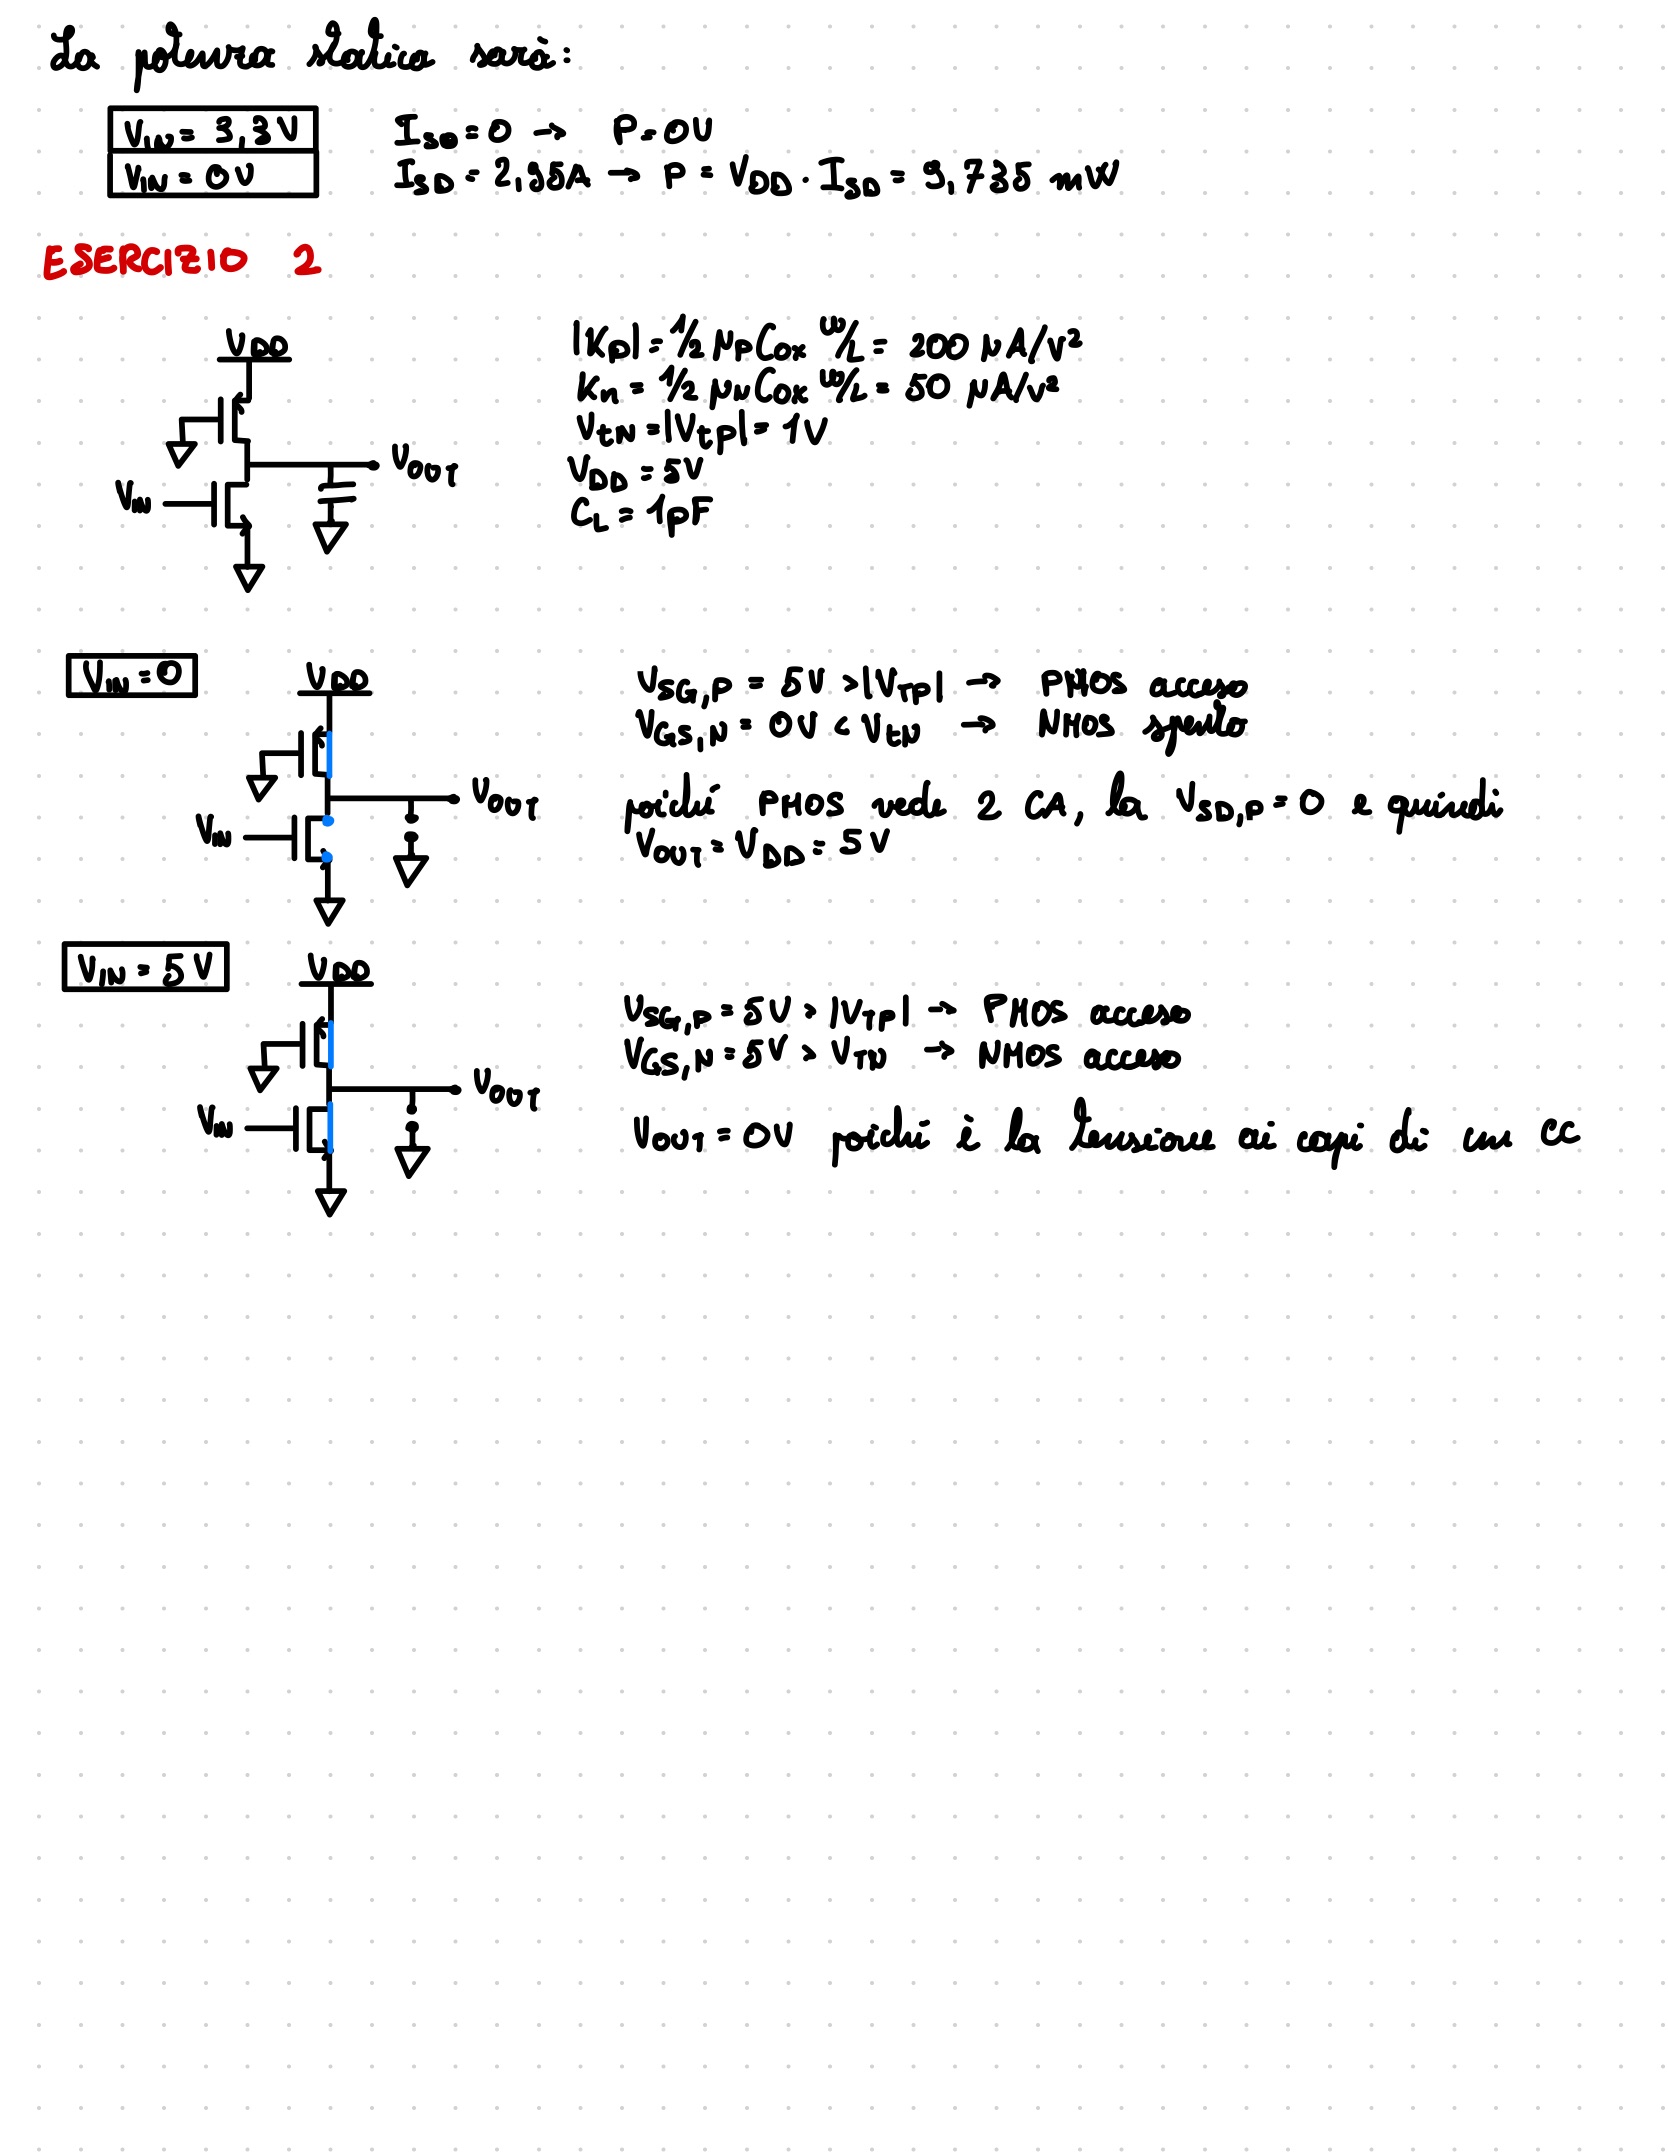 La potenza statica sarà:
VIN = 3,3V ISD = 0 → P = 0V
VIN = 0V ISD = 2,95A → P = VDD · ISD = 9,735 mW
ESERCIZIO 2
VDD
VOUT
VIN
|Kp| = 1/2 μp Cox W/L = 200 μA/V²
Kn = 1/2 μN Cox W/L = 50 μA/V²
VtN = |Vtp| = 1V
VDD = 5V
CL = 1pF
VIN = 0
VDD
VOUT
VIN
VSG,P = 5V > |VTP| → PMOS acceso
VGS,N = 0V < VtN → NMOS spento
poiché PMOS vede 2 CA, la VSD,P = 0 e quindi
VOUT = VDD = 5V
VIN = 5V
VDD
VOUT
VIN
VSG,P = 5V > |VTP| → PMOS acceso
VGS,N = 5V > VTN → NMOS acceso
VOUT = 0V poiché è la tensione ai capi di un CC